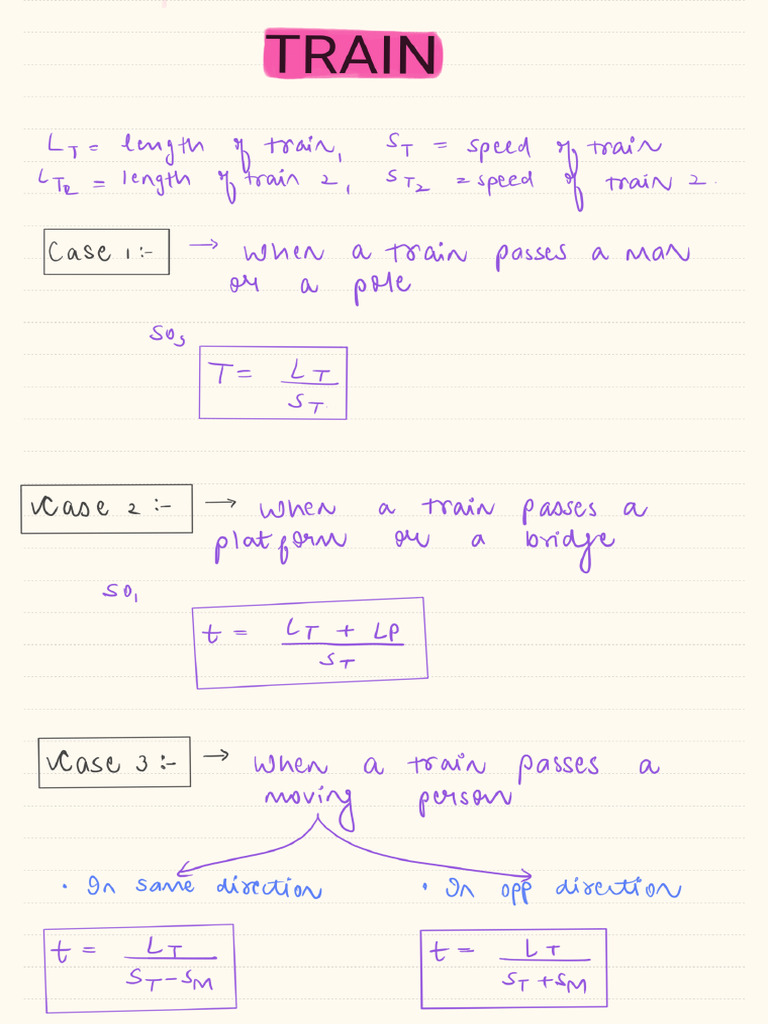 TRAIN
L_T = length of train, S_T = speed of train
L_T2 = length of train 2, S_T2 = speed of train 2.
Case 1:- → When a train passes a man
or a pole
so,
T = L_T / S_T
Case 2:- → When a train passes a
platform or a bridge
so,
t = L_T + LP / S_T
Case 3:- → When a train passes a
moving person
• In same direction • In opp direction
t = L_T / S_T - S_M t = L_T / S_T + S_M